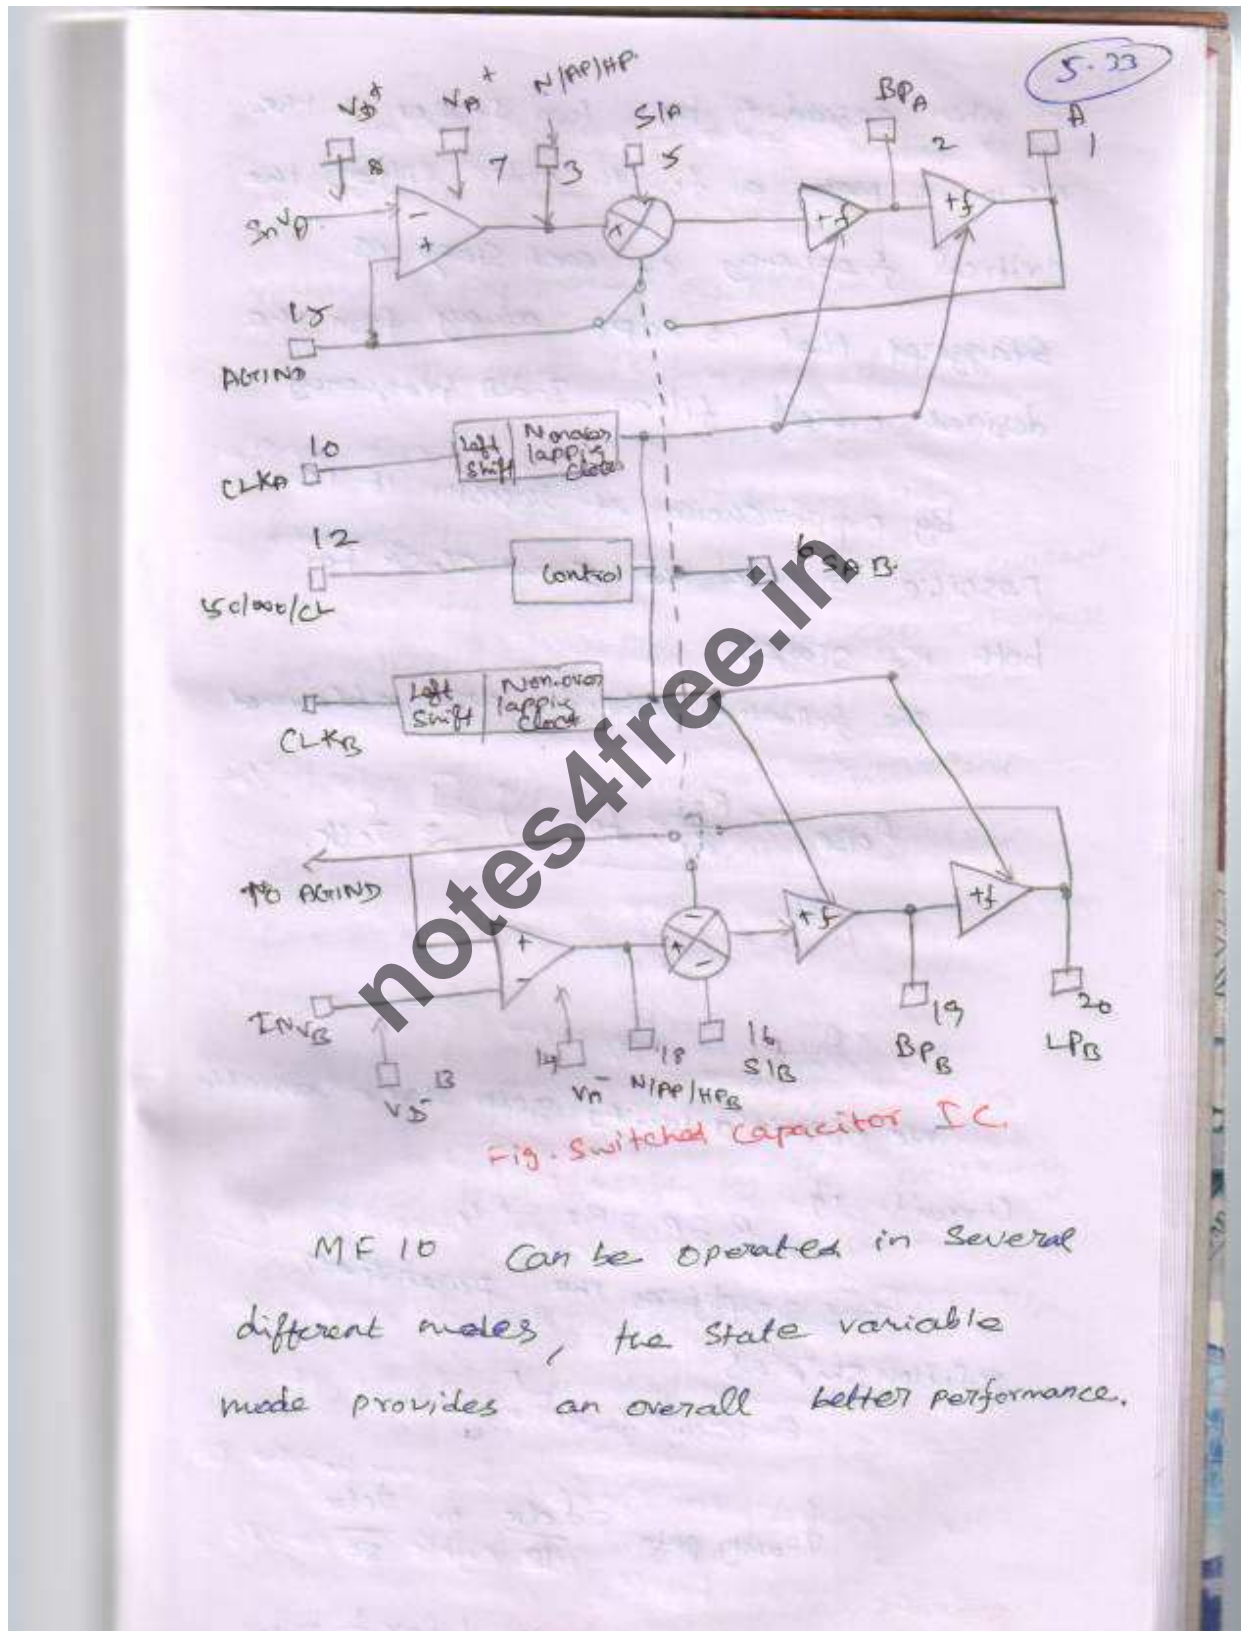 5.33
VD+
VA+
N/AP/HP
S1A
BPA
A
8
7
3
5
2
1
+f
+f
15
AGIND
10
CLKA
Left Shift
Nonover lapping Clock
12
Control
6
SAB
CLKB
Left Shift
Non-over lapping Clock
To AGIND
+f
+f
INVB
13
VD-
14
VA-
18
N/AP/HPB
16
S1B
19
BPB
20
LPB
notes4free.in
Fig. Switched Capacitor IC.
MF10 Can be operated in Several
different modes, the State variable
mode provides an overall better performance.